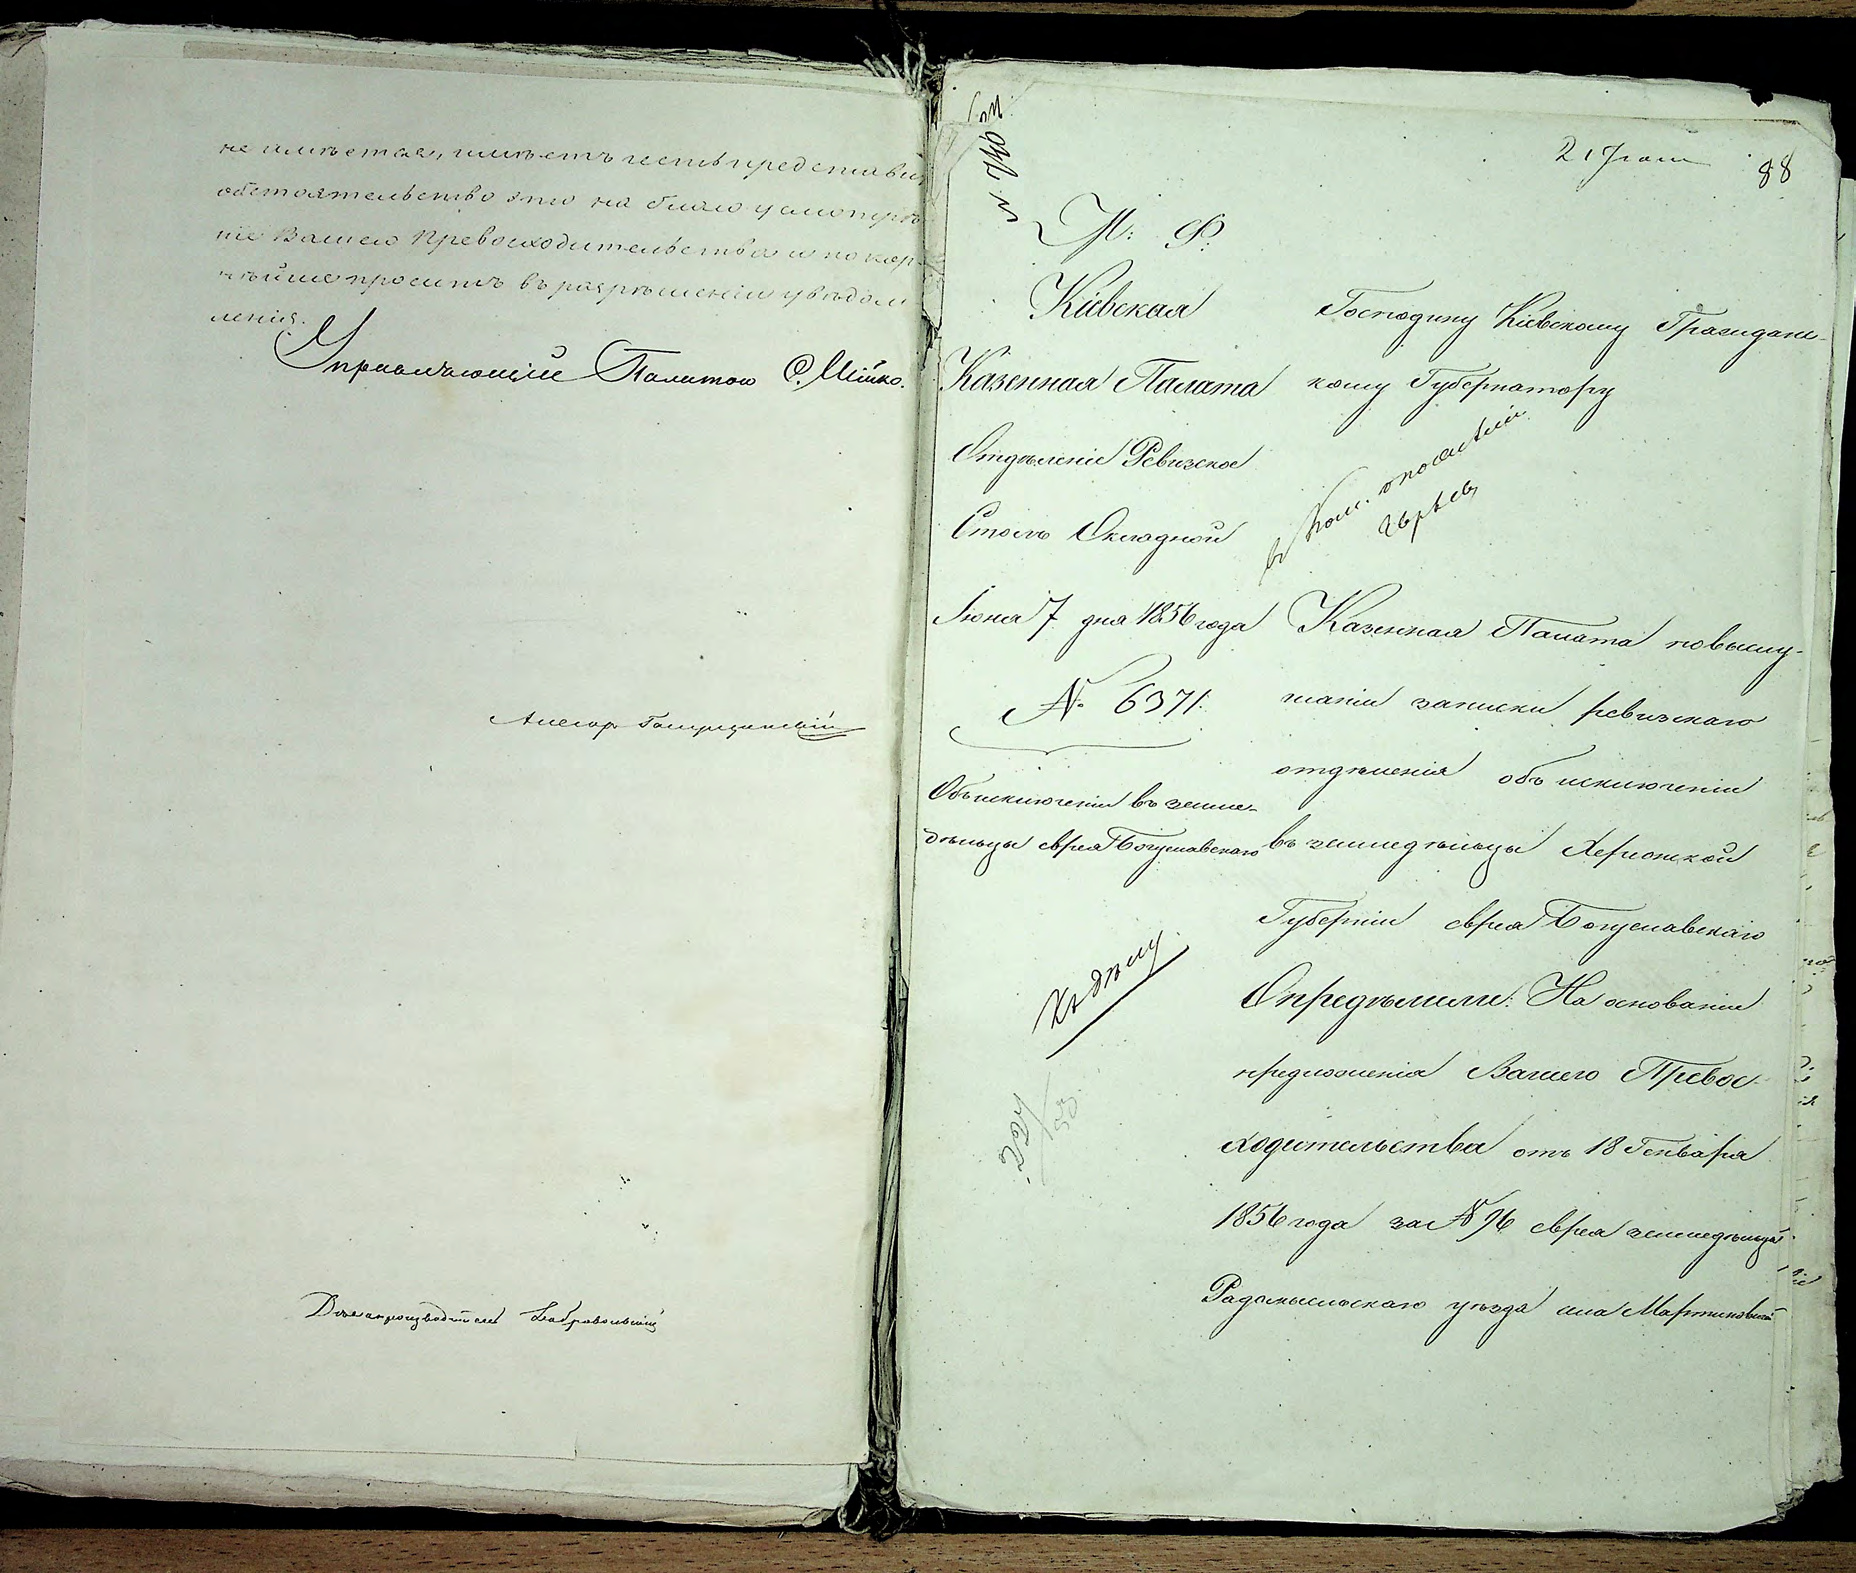 не имѣется, имѣетъ честь представи
обстоятельство это на благоусмотрѣ
ніе Вашего Превосходительства и покор-
нѣйше проситъ въ разрѣшеніи увѣдом
ленія.
Управляющій Палатою С.
Ассесоръ
Дѣлопроизводитель
21 Іюня
88
М: Ф:
Кіевская
Казенная Палата
Отдѣленіе Ревизское
Столъ Окладной
Іюня 7 дня 1856 года
№ 6371.
Объ исключеніи въ земле-
дѣльцы еврея Богуславскаго
Къ дѣлу
Господину Кіевскому Граждан-
скому Губернатору
Казенная Палата по выслу-
шаніи записки ревизскаго
отдѣленія объ исключеніи
въ земледѣльцы Херсонской
Губерніи еврея Богуславскаго
Опредѣлили: На основаніи
предложенія Вашего Превос-
ходительства отъ 18 Генваря
1856 года за № 96 еврея земледѣльца
Радомысльскаго уѣзда